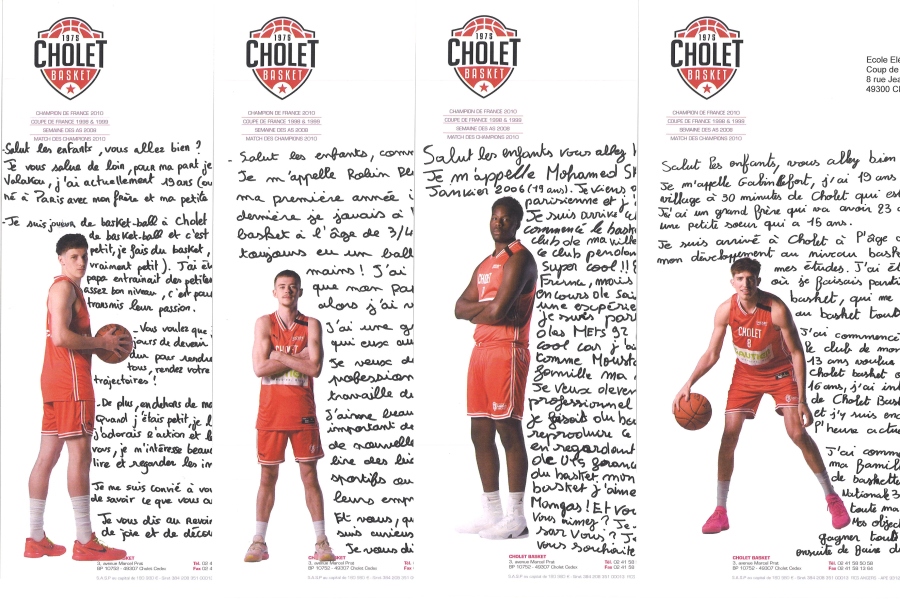 1975
CHOLET
BASKET
CHAMPION DE FRANCE 2010
COUPE DE FRANCE 1998 & 1999
SEMAINE DES AS 2008
MATCH DES CHAMPIONS 2010
- Salut les enfants, vous allez bien ?
Je vous salue de loin, pour ma part je
Valakou, j'ai actuellement 19 ans (ou
né à Paris avec mon frère et ma petite
- Je suis joueur de basket-ball à Cholet
de basket-ball et c'est
petit, je fais du basket,
vraiment petit). J'ai ét
papa entrainait des petites
assez bon niveau, c'est pour
transmis leur passion.
- Vous voulez que
jours de devenir
dur pour rendre
tous, rendez votre
trajectoires !
- De plus, en dehors de ma
Quand j'étais petit, je l
j'adorais l'action et l
vous, je m'intéresse beau
lire et regarder les in
Je me suis convié à vou
de savoir ce que vous a
Je vous dis au revoir
de joie et de décou
CHOLET BASKET
3, avenue Marcel Prat
BP 10752 - 49307 Cholet Cedex
1975
CHOLET
BASKET
CHAMPION DE FRANCE 2010
COUPE DE FRANCE 1998 & 1999
SEMAINE DES AS 2008
MATCH DES CHAMPIONS 2010
- Salut les enfants, comm
Je m'appelle Robin
ma première année
dernière je jouais à
basket à l'âge de 3/4
toujours eu un ball
mains ! J'ai
que mon pa
alors j'ai
J'ai une g
qui eux au
Je veux de
profession
travaille d
J'aime beau
important de
de nouvelle
lire des li
sportifs ou
leurs emp
Et vous, qu
suis curieux
Je vous di
CHOLET BASKET
3, avenue Marcel Prat
BP 10752 - 49307 Cholet Cedex
1975
CHOLET
BASKET
CHAMPION DE FRANCE 2010
COUPE DE FRANCE 1998 & 1999
SEMAINE DES AS 2008
MATCH DES CHAMPIONS 2010
Salut les enfants vous allez
Je m'appelle Mohamed
Janvier 2006 (19 ans). Je viens d
parisienne et j'
Je suis arrivé à
commencé le bask
club de ma ville
ce club pendan
Super cool !!
France, mais
en cours de sai
une expérience
je suis par
à les METS 92
cool car j'ai
comme
famille ma
Je veux deven
professionnel
je faisais du ba
reproduire ce
en regardant
de
du basket, mon
basket j'aime
Mangas ! Et vou
vous aimez ? Je
sar vous ? Je
vous souhaite
CHOLET BASKET
3, avenue Marcel Prat
BP 10752 - 49307 Cholet Cedex
1975
CHOLET
BASKET
CHAMPION DE FRANCE 2010
COUPE DE FRANCE 1998 & 1999
SEMAINE DES AS 2008
MATCH DES CHAMPIONS 2010
Ecole Elé
Coup de
8 rue Jea
49300 C
Salut les enfants, vous allez bien
Je m'appelle Gabin Lefort, j'ai 19 ans
village à 30 minutes de Cholet qui es
J'ai un grand frère qui va avoir 23 a
une petite soeur qui a 15 ans.
Je suis arrivé à Cholet à l'âge d
mon développement au niveau baske
mes études. J'ai ét
où je faisais parti
basket, qui me
au basket tout
J'ai commencé
le club de mon
13 ans voulue
Cholet basket
16 ans, j'ai int
de Cholet Bas
et j'y suis enc
l'heure actue
J'ai comme
ma famill
de baskette
Nationale 3
toute ma
Mes objec
gagner tout
ensuite de faire d
CHOLET
8
CHOLET BASKET
3, avenue Marcel Prat
BP 10752 - 49307 Cholet Cedex
Tél. 02 41 58 50 58
Fax 02 41 58 13 84